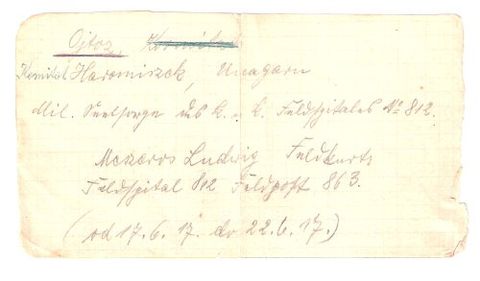 Ojtoz, Komitat
Komitat Haromszek, Ungarn
Mil. Seelsorge des k. u. k. Feldspitales No 812.
Ludwig Feldkurat
Feldspital 812 Feldpost 863.
(od 17. 6. 17. do 22. 6. 17.)